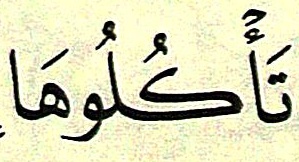 تَأۡكُلُوهَا